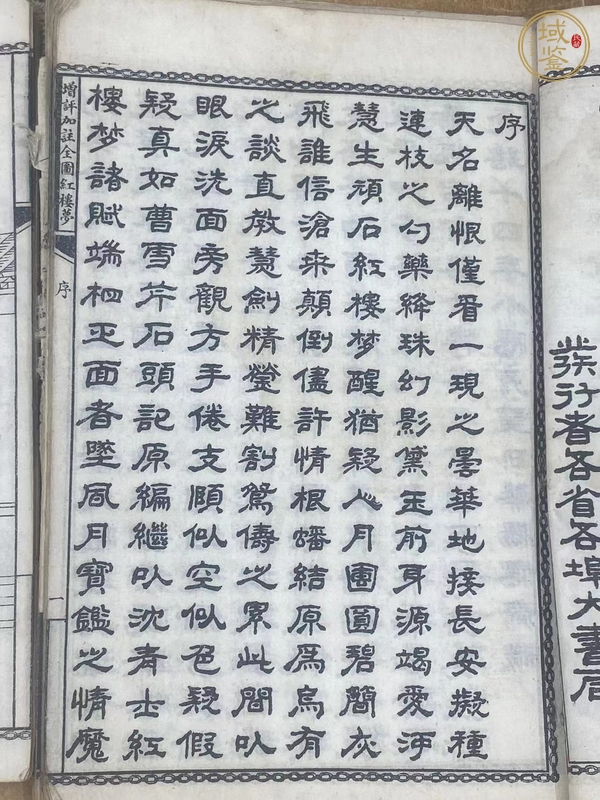 發行者各省各埠大書局
序
天名離恨僅看一現之曇華地接長安擬種
連枝之勺藥絳珠幻影黛玉前身源竭愛河
慧生頑石紅樓梦醒猶疑心月團圓碧簡灰
飛誰信滄桑顛倒儘許情根蟠結原爲烏有
之談直教慧劍精瑩難割鴛儔之累此間以
眼淚洗面旁觀方手倦支頤似空似色疑假
疑真如曹雪芹石頭記原編繼以沈青士紅
樓梦諸賦端相正面者墜風月寶鑑之情魔
增評加註全圖紅樓夢
序
域鑒